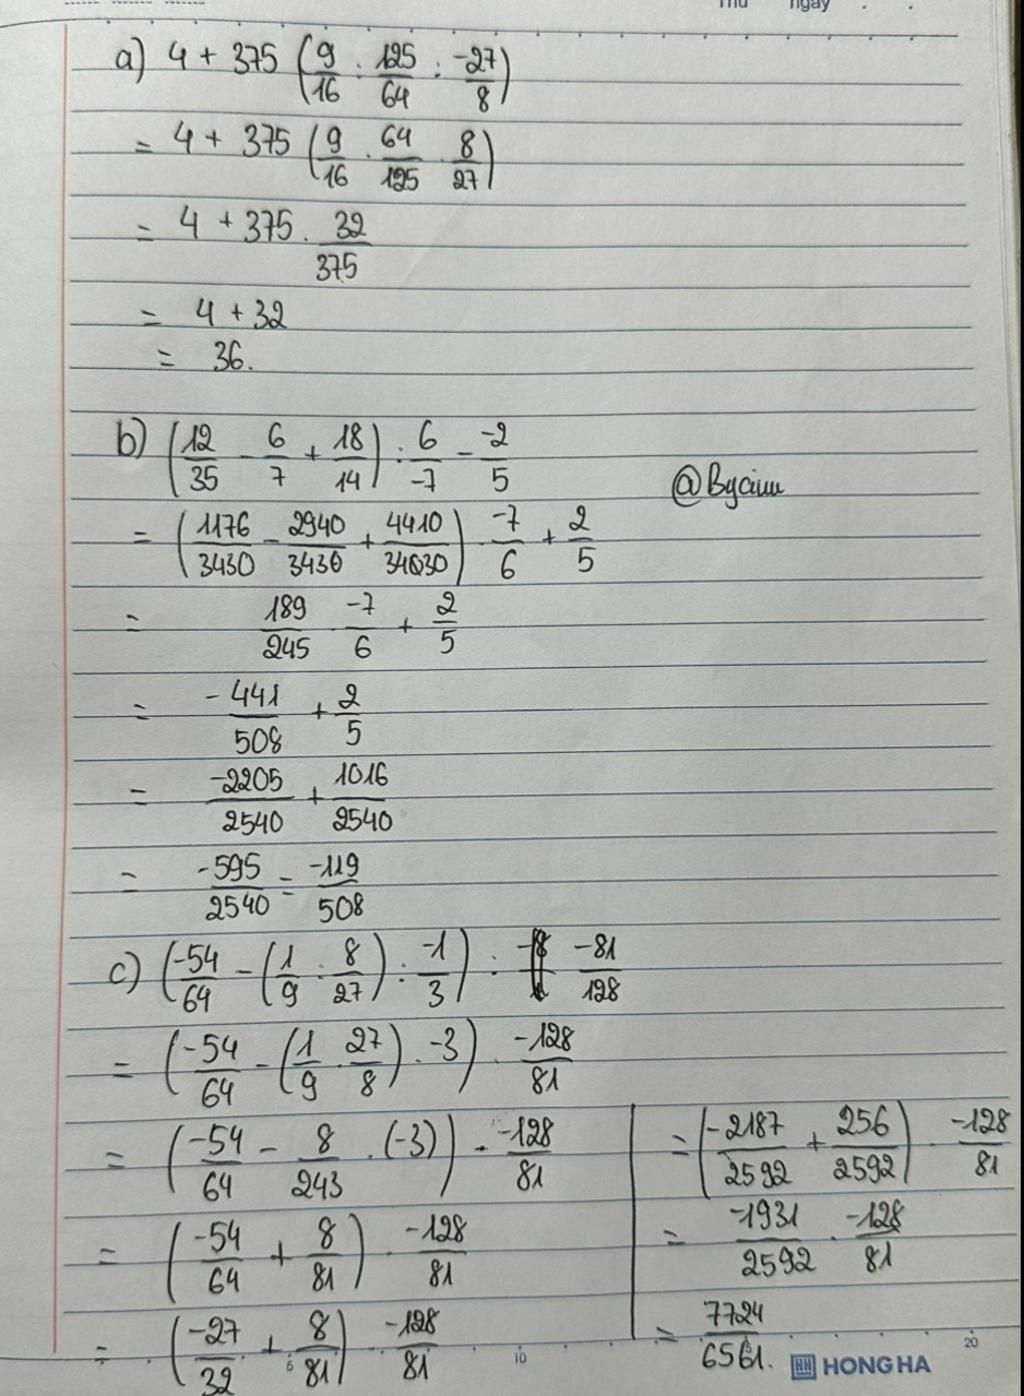 Thứ ngày
a) 4 + 375 (9/16 : 125/64 : -27/8)
= 4 + 375 (9/16 . 64/125 . 8/27)
= 4 + 375 . 32/375
= 4 + 32
= 36.
b) (12/35 - 6/7 + 18/14) : 6/-7 - -2/5
@Byciuu
= (1176/3430 - 2940/3430 + 4410/34030) . -7/6 + 2/5
= 189/245 . -7/6 + 2/5
= -441/508 + 2/5
= -2205/2540 + 1016/2540
= -595/2540 = -119/508
c) (-54/64 - (1/9 : 8/27) : -1/3) : -81/128
= (-54/64 - (1/9 . 27/8) . -3) . -128/81
= (-54/64 - 8/243 . (-3)) . -128/81
= (-54/64 + 8/81) . -128/81
= (-27/32 + 8/81) . -128/81
= (-2187/2592 + 256/2592) . -128/81
= -1931/2592 . -128/81
= 7724/6561.
5 10 20
HH HONG HA